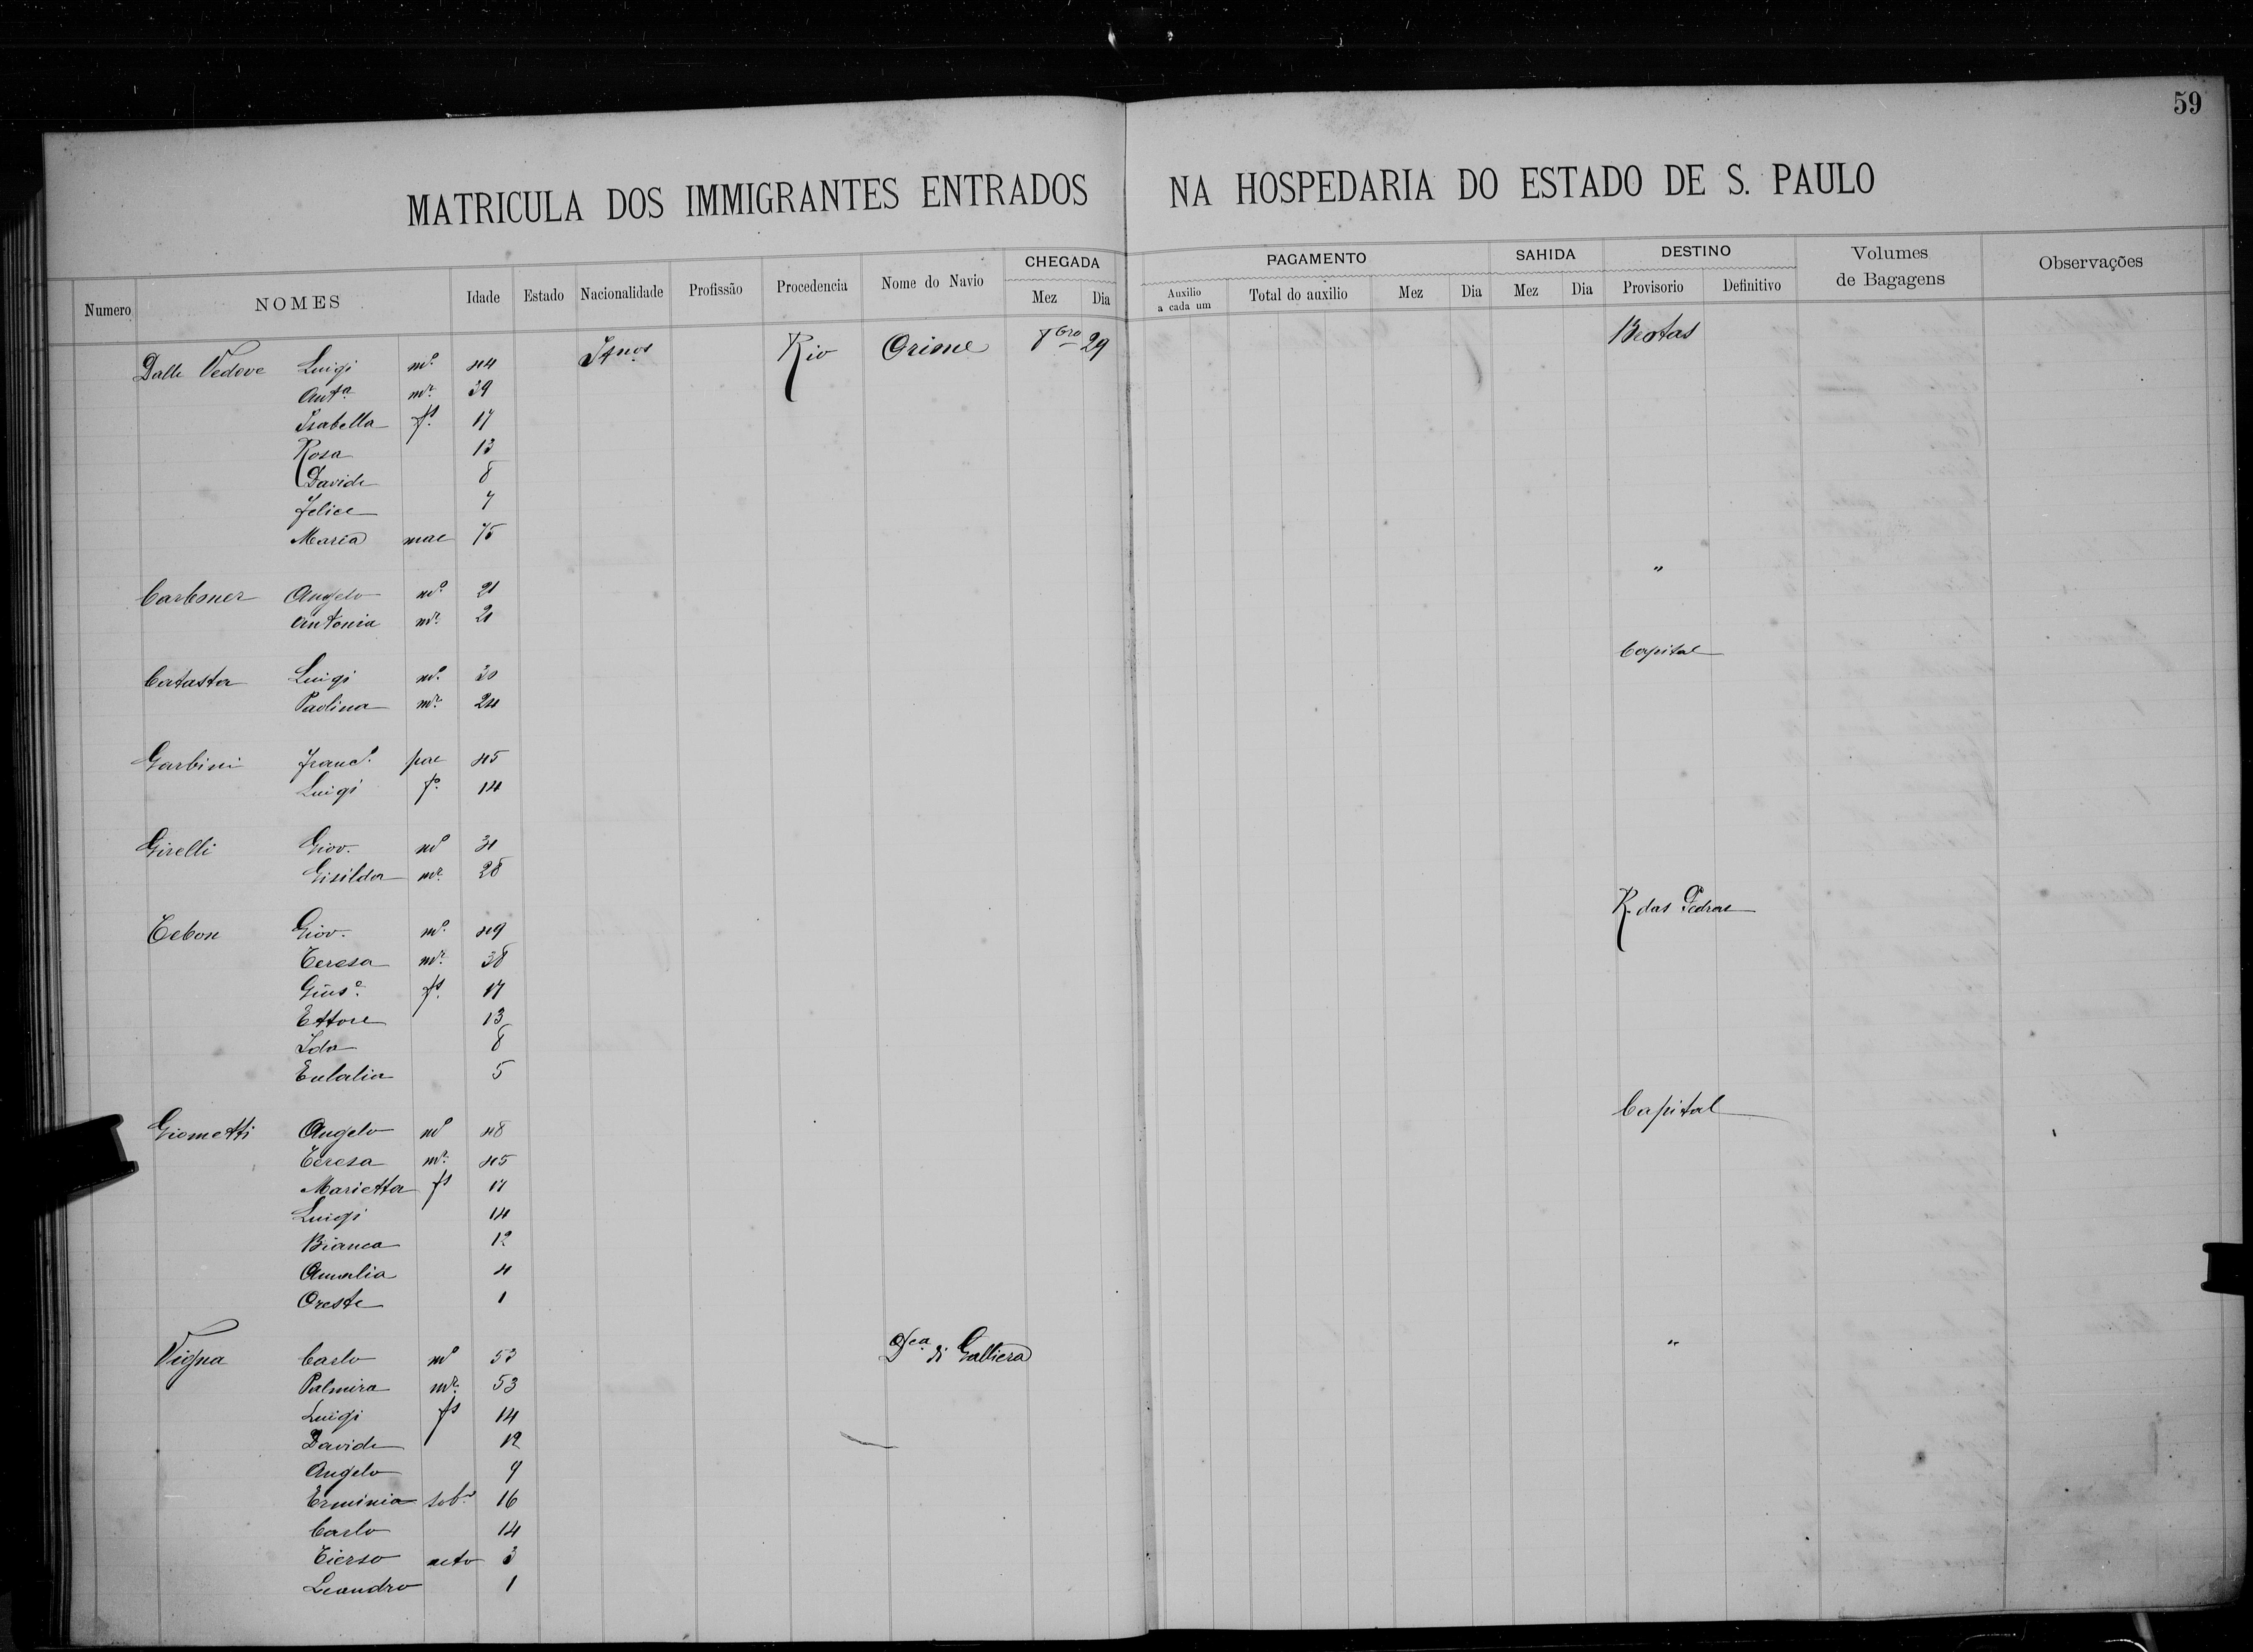 59
MATRICULA DOS IMMIGRANTES ENTRADOS NA HOSPEDARIA DO ESTADO DE S. PAULO
Numero NOMES Idade Estado Nacionalidade Profissão Procedencia Nome do Navio CHEGADA Mez Dia PAGAMENTO Auxilio a cada um Total do auxilio Mez Dia SAHIDA Mez Dia DESTINO Provisorio Definitivo Volumes de Bagagens Observações
Dalle Vedove Luigi mº 44 Itnos Rio Orione 8bro 29 Brotas
Antª mr 39
Isabella fs 17
Rosa 13
Davide 8
Felice 7
Maria mae 75
Angelo mº 21 "
Antonia mr 21
Catasta Luigi mº 30 Capital
Paolina mr 24
Garbini Francº pae 45
Luigi fº 14
Girelli Giov. mº 31
Gisilda mr 28
Tebon Giov. mº 49 R. das Pedras
Teresa mr 38
Giusе fs 17
Ettore 13
Ida 8
Eulalia 5
Giometti Angelo mº 48 Capital
Teresa mr 45
Marietta fs 17
Luigi 14
Bianca 12
Amalia 4
Oreste 1
Vigna Carlo mº 53 Dca di Galliera "
Palmira mr 53
Luigi fs 14
Davide 12
Angelo 9
Erminia sobº 16
Carlo 14
neto 3
Leandro 1